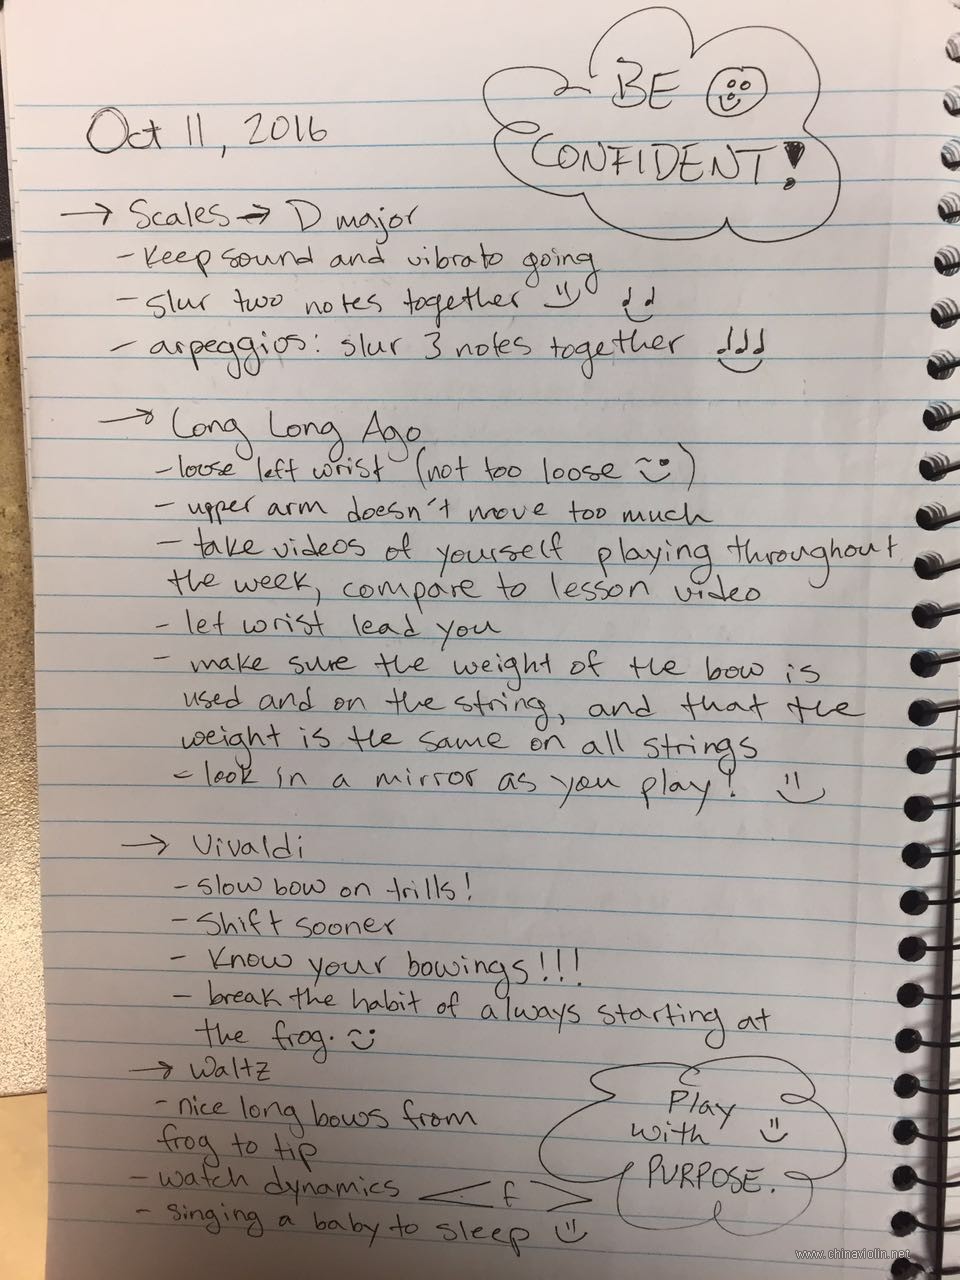 BE
CONFIDENT!
Oct 11, 2016
→ Scales → D major
- keep sound and vibrato going
- slur two notes together
- arpeggios: slur 3 notes together
→ Long Long Ago
- loose left wrist (not too loose )
- upper arm doesn't move too much
- take videos of yourself playing throughout
the week, compare to lesson video
- let wrist lead you
- make sure the weight of the bow is
used and on the string, and that the
weight is the same on all strings
- look in a mirror as you play!
→ Vivaldi
- slow bow on trills!
- Shift sooner
- Know your bowings!!!
- break the habit of always starting at
the frog.
→ Waltz
- nice long bows from
frog to tip
- watch dynamics < f >
- singing a baby to sleep
Play
with
PURPOSE.
www.chinaviolin.net